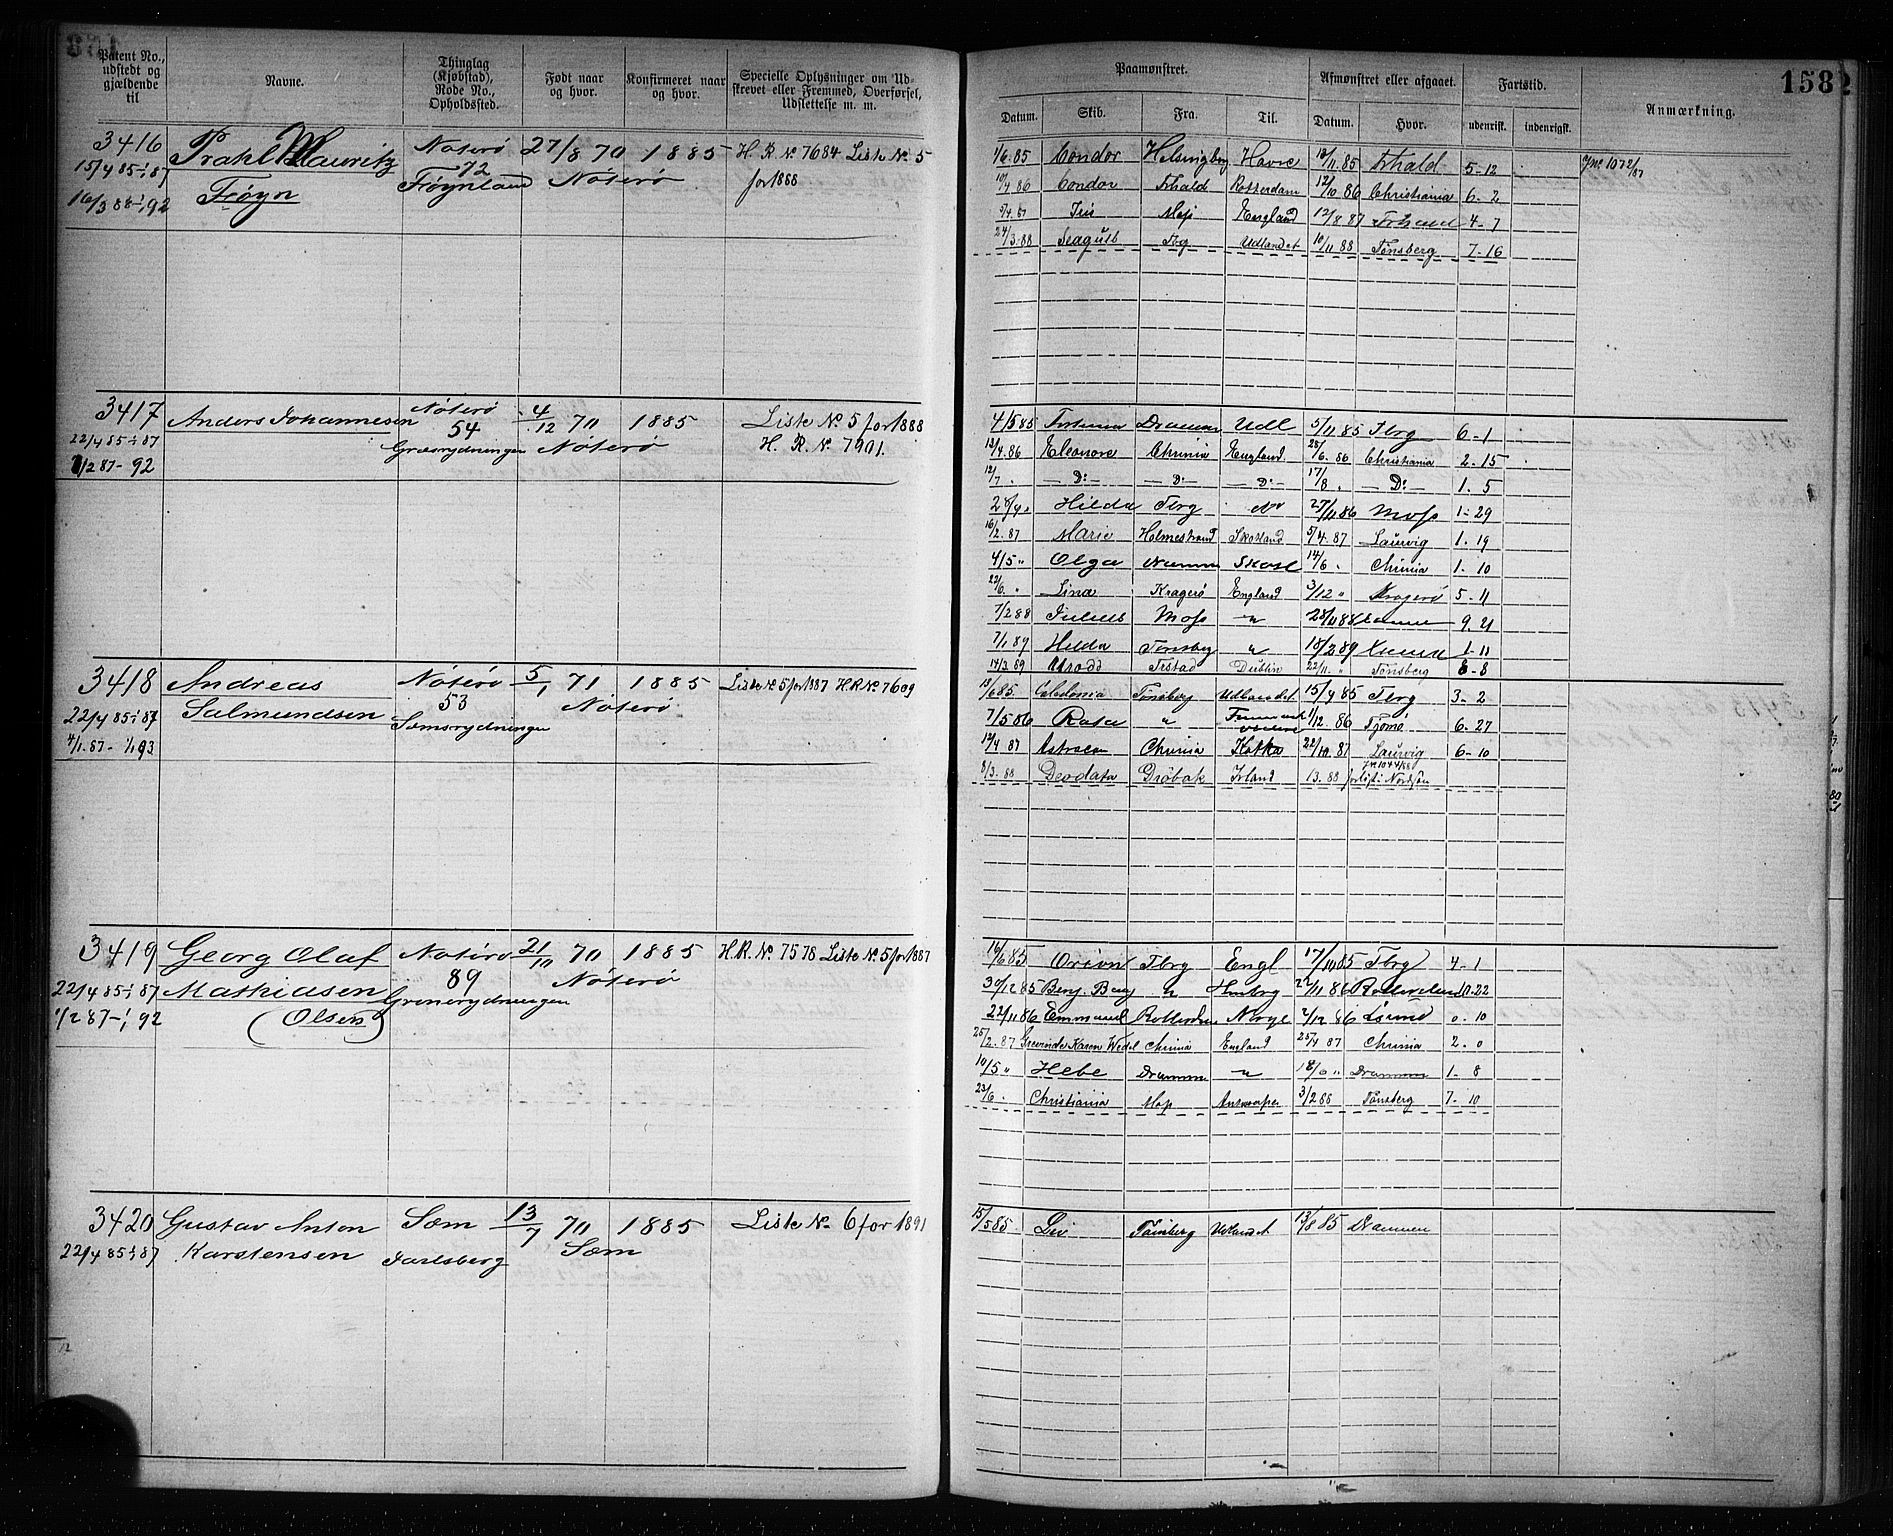 Patent No., udstedt og gjældende til
Navne.
Thinglag (Kjøbstad), Rode No., Opholdssted.
Født naar og hvor.
Konfirmeret naar og hvor.
Specielle Oplysninger om Udskrevet eller Fremmed, Overførsel, Udslettelse m. m.
Paamønstret.
Afmønstret eller afgaaet.
Fartstid.
Anmærkning.
1582
Datum. Skib. Fra. Til. Datum. Hvor. udenrigsk. indenrigsk.
3416
15/4 85-1/1 87
16/3 88-1/1 92
Prahl Mauritz
Frøyn
Nøterø
72
Frøynland
27/8 70
Nøterø
1885
H. R. N. 7684 Liste No 5
for 1888
1/6.85 Condor Helsingborg Havre 13/11.85 Frhald 5-12
10/4 86 Condor Frhald Rotterdam 12/10 86 Christiania 6-2
5/4.87 Iris Moss England 12/8 87 Frhald 4-7
24/3-88 Seagull Tbg Udlandet 10/11 88 Tønsberg 7-16
Jnr. 1072/87
3417
22/4 85-1/1 87
1/2 87-92
Anders Johannesen
Nøterø
54
Græsrydningen
4/12 70
Nøterø
1885
Liste No 5 for 1888
H. R. N. 7901.
4/5 85 Fortuna Drammen Udl 5/11 85 Tbrg 6-1
13/4.86 Eleonore Chrinia England 28/6.86 Christiania 2-15
12/7 . -D:- -D:- -D:- 17/8 . -D:- 1.5
Hilda Tbrg 27/11 86 Moss 1-29
16/2.87 Marie Holmestrand Skotland 5/4.87 Laurvig 1.19
4/5 " Olga Skotl 14/6 . Chrinia 1.10
22/6. " Lina Kragerø England 3/12 " Kragerø 5-11
7/2 88 Julius Moss " 28/11 88 9.21
7/1 89 Hilda Tønsbg " 18/2 89 1-11
14/3.89 Dublin 22/11. " Tønsberg 8-8
3418
22/4 85-1/1 87
4/1.87-1/1 93
Andreas
Salmundsen
Nøterø
53
Sæmsrydningen
5/1 71
Nøterø
1885
Liste No 5 for 1887 H.R.No. 7609
13/6 85 Caledonia Tønsberg Udlandet 15/9 85 Tbrg 3-2
7/5 86 Rosa " 1/12.86 Tjømø 6-27
12/4 87 Astræa Chrinia Kotka 22/10.87 Laurvig 6-10
8/3.88 Deodata Drøbak Irland 13.88 forlist i Nordsøn
3419
22/4 85-1/1 87
1/2 87-1/1 92
Georg Olaf
Mathiasen
(Olsen)
Nøterø
89
Grønsrydningen
21/10 70
Nøterø
1885
H.R.No. 7578 Liste No 5 for 1887
16/6 85 Orion Tbrg Engl 17/10 85 Tbrg 4-1
30/12 85 Benj. Bang " Hmbrg 22/11 86 10.22
22/11 86 Emmanuel Rotterdam Norge 2/12 86 0.10
25/2.87 Grevinde Karen Wedel Chrinia England 25/4 87 Chrinia 2.0
10/5 " Hebe Drammen " 18/6 " Drammen 1-8
23/6 . Christiania Moss Antwerpen 3/2 88 Tønsberg 7-10
3420
22/4 85-1/1 87
Gustav Anton
Karstensen
Sæm
Jarlsberg
13/7 70
Sæm
1885
Liste No 6 for 1891
15/5 85 Leo Tønsberg Udlandet 13/8 85 Drammen